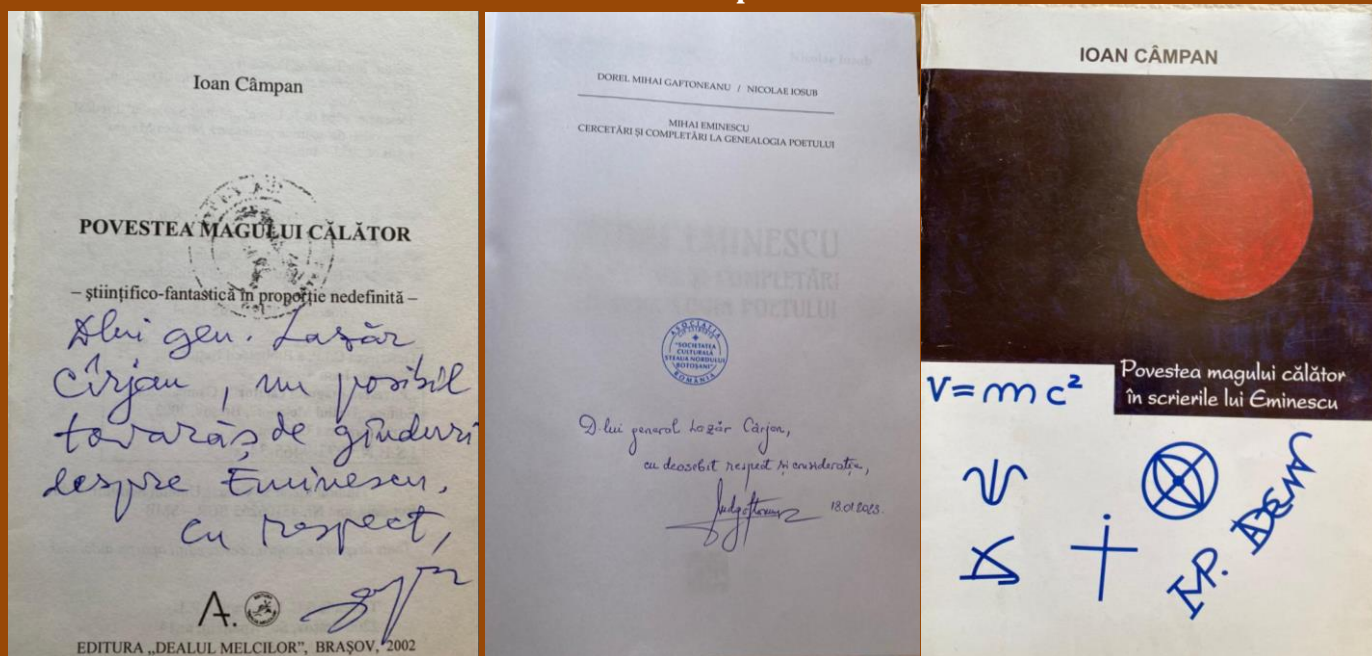 Ioan Câmpan
POVESTEA MAGULUI CĂLĂTOR
– științifico-fantastică în proporție nedefinită –
Dlui gen. Lazăr
Cîrjan, un posibil
tovarăș de gînduri
despre Eminescu,
cu respect,
A.
EDITURA „DEALUL MELCILOR”, BRAȘOV, 2002
DOREL MIHAI GAFTONEANU / NICOLAE IOSUB
MIHAI EMINESCU
CERCETĂRI ȘI COMPLETĂRI LA GENEALOGIA POETULUI
EMINESCU
COMPLETĂRI
POETULUI
ASOCIAȚIA
"SOCIETATEA
CULTURALĂ
STEAUA NORDULUI
BOTOȘANI"
ROMÂNIA
D-lui general Lazăr Cârjan,
cu deosebit respect și considerație,
18.01.2023.
IOAN CÂMPAN
Povestea magului călător
în scrierile lui Eminescu
V=mc²